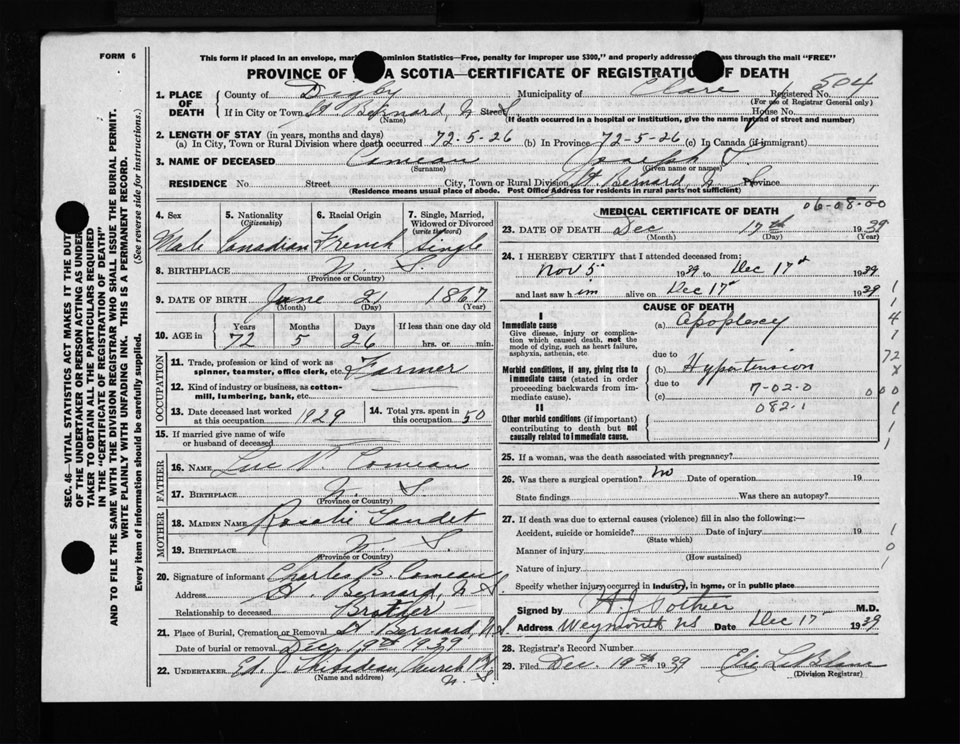 FORM 6
This form if placed in an envelope, mar Dominion Statistics—Free, penalty for improper use $300," and properly addresse ss through the mail "FREE"
PROVINCE OF A SCOTIA—CERTIFICATE OF REGISTRATION OF DEATH
1. PLACE OF DEATH
County of Digby Municipality of Clare Registered No. 504
(For use of Registrar General only)
If in City or Town St. Bernard, N.S. Street House No.
(Name) (If death occurred in a hospital or institution, give the name instead of street and number)
2. LENGTH OF STAY (in years, months and days)
(a) In City, Town or Rural Division where death occurred 72-5-26 (b) In Province 72-5-26 (c) In Canada (if immigrant)
3. NAME OF DECEASED Comeau Joseph
(Surname) (Given name or names)
RESIDENCE No Street City, Town or Rural Division St. Bernard, N. S. Province
(Residence means usual place of abode. Post Office Address for residents in rural parts not sufficient)
4. Sex
Male
5. Nationality
(Citizenship)
Canadian
6. Racial Origin
French
7. Single, Married, Widowed or Divorced
(write the word)
Single
8. BIRTHPLACE N. S.
(Province or Country)
9. DATE OF BIRTH June 21 1867
(Month) (Day) (Year)
10. AGE in Years Months Days If less than one day old
72 5 26 hrs. or min.
OCCUPATION
11. Trade, profession or kind of work as
spinner, teamster, office clerk, etc. Farmer
12. Kind of industry or business, as cotton-
mill, lumbering, bank, etc.
13. Date deceased last worked
at this occupation 1929
14. Total yrs. spent in
this occupation 50
15. If married give name of wife
or husband of deceased
FATHER
16. NAME Luc P. Comeau
17. BIRTHPLACE N. S.
(Province or Country)
MOTHER
18. MAIDEN NAME Rosalie Gaudet
19. BIRTHPLACE N. S.
(Province or Country)
20. Signature of informant Charles B. Comeau
Address St. Bernard, N. S.
Relationship to deceased Brother
21. Place of Burial, Cremation or Removal St. Bernard, N.S.
Date of burial or removal Dec. 19th 1939
22. UNDERTAKER Ed. J. Thibodeau, Church Pt.
N. S.
(Name and address)
MEDICAL CERTIFICATE OF DEATH
06-08-00
23. DATE OF DEATH Dec. 17th 1939
(Month) (Day) (Year)
24. I HEREBY CERTIFY that I attended deceased from:
Nov 5 1939 to Dec 17 1939
and last saw him alive on Dec 17 1939
CAUSE OF DEATH
I
Immediate cause
Give disease, injury or complica-
tion which caused death, not the
mode of dying, such as heart failure,
asphyxia, asthenia, etc
(a) Apoplexy
due to
Morbid conditions, if any, giving rise to
immediate cause (stated in order
proceeding backwards from im-
mediate cause).
(b) Hypertension
due to
(c) 7-02-0
082.1
II
Other morbid conditions (if important)
contributing to death but not
causally related to immediate cause.
25. If a woman, was the death associated with pregnancy?
26. Was there a surgical operation? No Date of operation 19
State findings Was there an autopsy?
27. If death was due to external causes (violence) fill in also the following:—
Accident, suicide or homicide? Date of injury 19
(State which)
Manner of injury
(How sustained)
Nature of injury
Specify whether injury occurred in industry, in home, or in public place
Signed by Pothier M.D.
Address Weymouth NS Date Dec 17 1939
28. Registrar's Record Number
29. Filed Dec. 19th 1939 LeBlanc
(Division Registrar)
SEC. 46—VITAL STATISTICS ACT MAKES IT THE DUT
OF THE UNDERTAKER OR PERSON ACTING AS UNDER
TAKER TO OBTAIN ALL THE PARTICULARS REQUIRED
IN THE "CERTIFICATE OF REGISTRATION OF DEATH"
AND TO FILE THE SAME WITH THE DIVISION REGISTRAR WHO SHALL ISSUE THE BURIAL PERMIT.
WRITE PLAINLY WITH UNFADING INK. THIS IS A PERMANENT RECORD.
Every item of information should be carefully supplied. (See reverse side for instructions.)